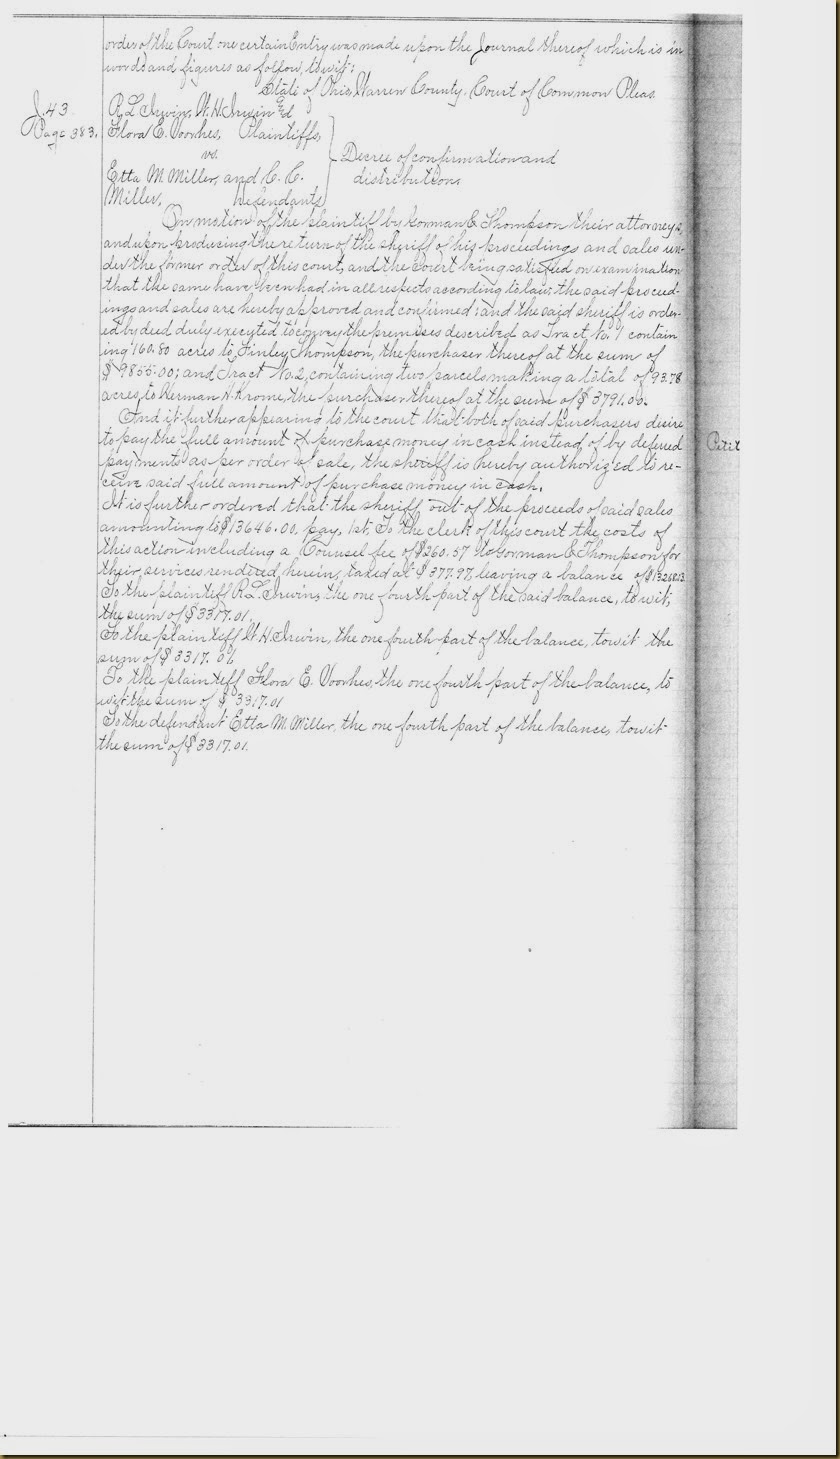 order of the Court one certain Entry was made upon the Journal thereof which is in
words and figures as follow, to wit:
State of Ohio, Warren County. Court of Common Pleas.
J. 43
Page 383.
R. L. Irwin, W. H. Irwin &d
Flora E. Voorhes, Plaintiffs,
vs.
Etta M. Miller, and C. C.
Miller, Defendants
Decree of confirmation and
distribution.
On motion of the plaintiff by Gorman & Thompson their attorneys,
and upon producing the return of the sheriff of his proceedings and sales un-
der the former order of this court, and the Court being satisfied on examination
that the same have been had in all respects according to law, the said proceed-
ings and sales are hereby approved and confirmed; and the said sheriff is order-
ed by deed duly executed to convey the premises described as Tract No. 1 contain
ing 160.80 acres to Finley Thompson, the purchaser thereof at the sum of
$9855.00; and Tract No. 2, containing two parcels making a total of 93.78
acres, to Herman H. Krome, the purchaser thereof at the sum of $3791.00.
And it further appearing to the court that both of said purchasers desire
to pay the full amount of purchase money in cash instead of by deferred
payments as per order of sale, the sheriff is hereby authorized to re-
ceive said full amount of purchase money in cash.
It is further ordered that the sheriff out of the proceeds of said sales
amounting to $13646.00, pay, 1st, To the clerk of this court the costs of
this action including a Counsel fee of $260.57 to Gorman & Thompson for
their services rendered herein, taxed at $377.97, leaving a balance of $13268.03
To the plaintiff R. L. Irwin, the one fourth part of the said balance, to wit;
the sum of $3317.01.
To the plaintiff W. H. Irwin, the one fourth part of the balance, towit the
sum of $3317.01.
To the plaintiff Flora E. Voorhes, the one fourth part of the balance, to
wit the sum of $3317.01
To the defendant Etta M. Miller, the one fourth part of the balance, towit
the sum of $3317.01.
Petit